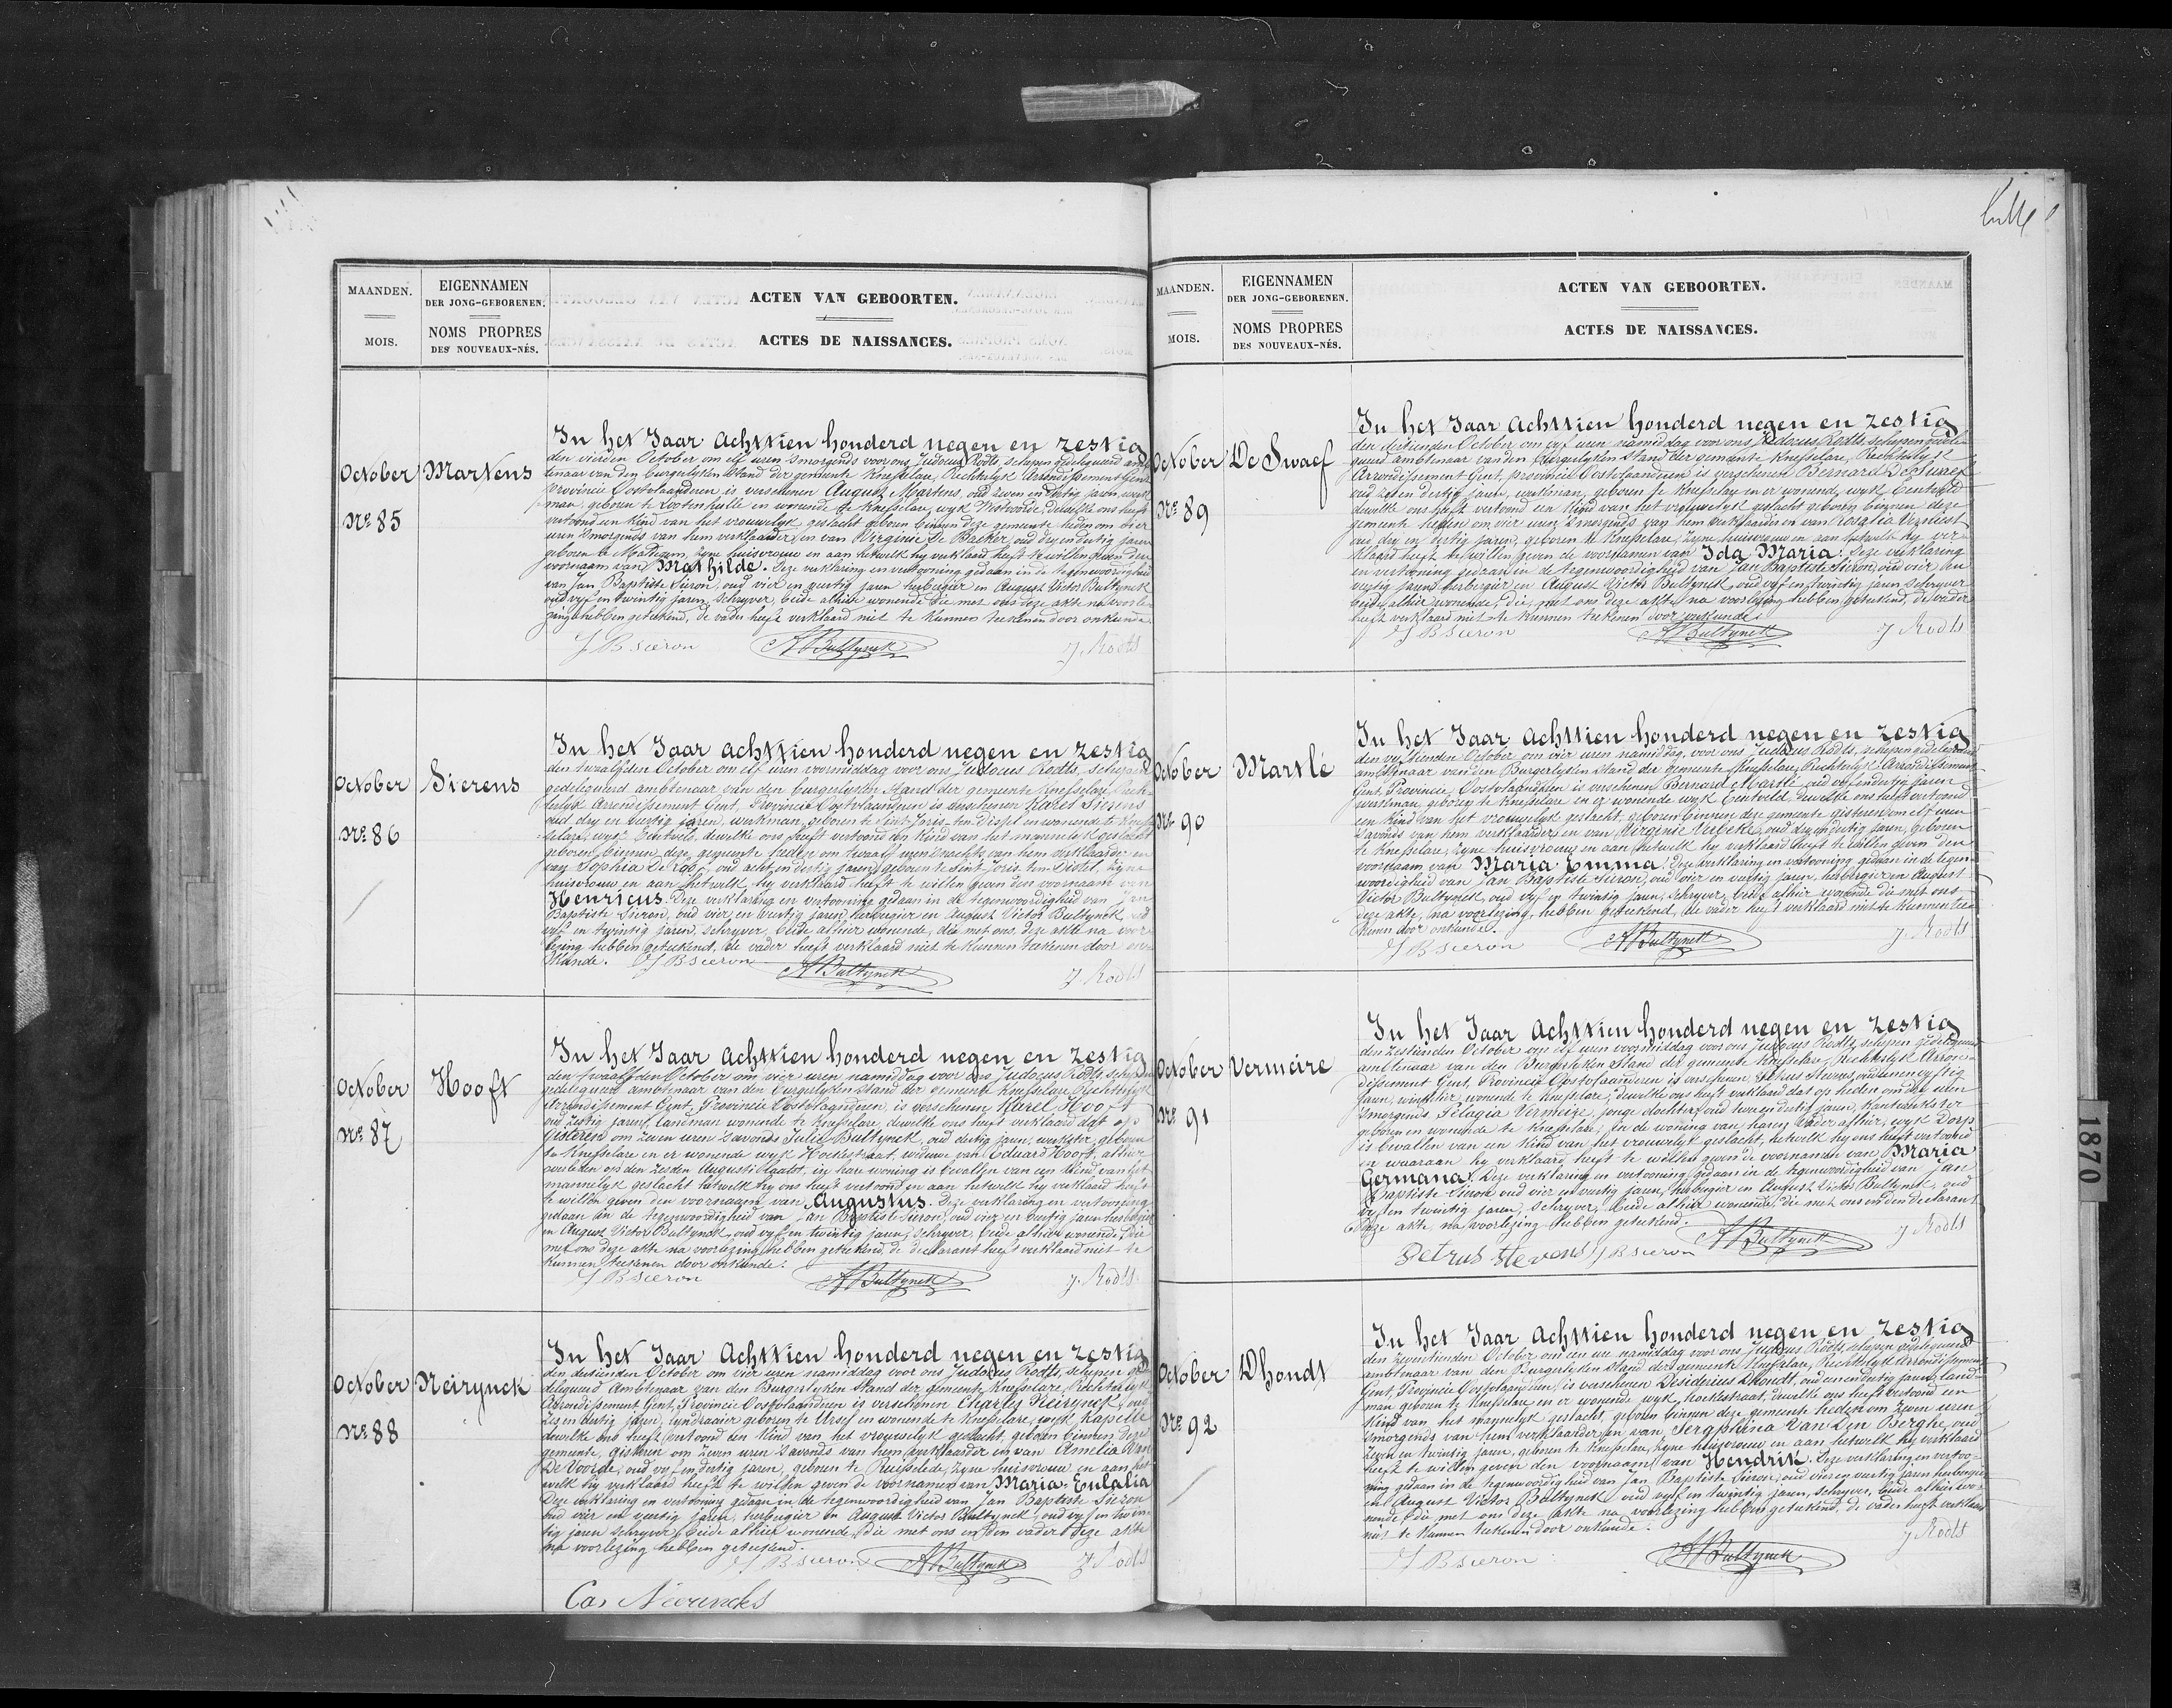 MAANDEN.
MOIS.
EIGENNAMEN
DER JONG-GEBORENEN.
NOMS PROPRES
DES NOUVEAUX-NÉS.
ACTEN VAN GEBOORTEN.
ACTES DE NAISSANCES.
October
Nr 85
Martens
In het Jaar achttien honderd negen en zestig
den vierden October om elf uren smorgends voor ons Judocus Rodts, schepen gedelegueerd amb-
tenaar van den burgerlyken stand der gemeente Knesselare, Rechterlyk Arrondissement Gent
provincie Oostvlaanderen is verschenen August Martens, oud zeven en dertig jaren, werk-
man, geboren te Lootenhulle en wonende te Knesselare, wyk Westvoorde, dewelke ons heeft
vertoond een kind van het vrouwelyk geslacht geboren binnen deze gemeente heden om vier
uren smorgends van hem verklaarder en van Virginie De Backer, oud dry en dertig jaren
geboren te Maldegem, zyne huisvrouw en aan hetwelk hy verklaard heeft te willen geven den
voornaam van Mathilde. Deze verklaring en vertooning gedaan in de tegenwoordigheid
van Jan Baptiste Sieron, oud vier en veertig jaren herbergier en August Victor Bultynck
oud vyf en twintig jaren, schryver, beide alhier wonende die met ons deze akte na voorle-
zing hebben geteekend, de vader heeft verklaard niet te kunnen teekenen door onkunde.
J B Sieron A Bultynck J. Rodts
October
Nr 86
Sierens
In het Jaar achttien honderd negen en zestig
den twaalfden October om elf uren voormiddag voor ons Judocus Rodts, schepen
gedelegueerd ambtenaar van den burgerlyken stand der gemeente Knesselare, Rech-
terlyk Arrondissement Gent, Provincie Oostvlaanderen is verschenen Karel Sierens
oud dry en veertig jaren, werkman, geboren te Sint Joris-ten-Distel en wonende te Knes-
selare, wyk Eentveld, dewelke ons heeft vertoond een kind van het mannelyk geslacht
geboren binnen deze gemeente heden om twaalf uren snachts van hem verklaarder en
van Sophia De Vos, oud acht en dertig jaren, geboren te Sint Joris ten Distel, zyne
huisvrouw en aan hetwelk hy verklaard heeft te willen geven den voornaam van
Henricus. Deze verklaring en vertooning gedaan in de tegenwoordigheid van Jan
Baptiste Sieron, oud vier en veertig jaren, herbergier en August Victor Bultynck oud
vyf en twintig jaren, schryver, beide alhier wonende, die met ons deze akte na voor-
lezing hebben geteekend, de vader heeft verklaard niet te kunnen teekenen door on-
kunde. J B Sieron A Bultynck J. Rodts
October
Nr 87
Hooft
In het Jaar achttien honderd negen en zestig
den twaalfden October om vier uren namiddag voor ons Judocus Rodts schepen
gedelegueerd ambtenaar van den Burgerlyken stand der gemeente Knesselare Rechterlyk
Arrondissement Gent, Provincie Oostvlaanderen, is verschenen Karel Hooft
oud zestig jaren, landman wonende te Knesselare, dewelke ons heeft verklaard dat op
gisteren om zeven uren savonds Julie Bultynck, oud dertig jaren, werkster, geboren
te Knesselare en er wonende wyk Hoekestraat, weduwe van Eduard Hooft, alhier
overleden op den zesden Augusti laatst, in hare woning is bevallen van een kind van het
mannelyk geslacht hetwelk hy ons heeft vertoond en aan hetwelk hy verklaard heeft
te willen geven den voornaam van Augustus. Deze verklaring en vertooning
gedaan in de tegenwoordigheid van Jan Baptiste Sieron, oud vier en veertig jaren herbergier
en August Victor Bultynck oud vyf en twintig jaren, schryver, beide alhier wonende, die
met ons deze akte na voorlezing hebben geteekend, de declarant heeft verklaard niet te
kunnen teekenen door onkunde.
J B Sieron A Bultynck J. Rodts
October
Nr 88
Neirynck
In het Jaar Achttien honderd negen en zestig
den dertienden October om vier uren namiddag voor ons Judocus Rodts, schepen ge-
delegueerd Ambtenaar van den Burgerlyken Stand der gemeente Knesselare, Rechterlyk
Arrondissement Gent, Provincie Oostvlaanderen is verschenen Charles Neirynck, oud
zes en dertig jaren, geboren te Ursel en wonende te Knesselare, wyk Kapelle
dewelke ons heeft vertoond een kind van het vrouwelyk geslacht, geboren binnen deze
gemeente, gisteren om zeven uren savonds van hem verklaarder en van Amelia Van
De Voorde, oud vyf en dertig jaren, geboren te Ruisselede, zyne huisvrouw en aan het-
welk hy verklaard heeft te willen geven de voornamen van Maria Eulalia
Deze verklaring en vertooning gedaan in de tegenwoordigheid van Jan Baptiste Sieron
oud vier en veertig jaren, herbergier en August Victor Bultynck, oud vyf en twin-
tig jaren schryver, beide alhier wonende, die met ons en den vader deze akte
na voorlezing hebben geteekend.
J B Sieron A Bultynck J. Rodts
MAANDEN.
MOIS.
EIGENNAMEN
DER JONG-GEBORENEN.
NOMS PROPRES
DES NOUVEAUX-NÉS.
ACTEN VAN GEBOORTEN.
ACTES DE NAISSANCES.
October
Nr 89
De Swaef
In het Jaar achttien honderd negen en zestig
den dertienden October om vyf uren namiddag voor ons Judocus Rodts, schepen gedele-
gueerd ambtenaar van den Burgerlyken stand der gemeente Knesselare, Rechterlyk
Arrondissement Gent, provincie Oostvlaanderen is verschenen Bernard De Swaef
oud zes en dertig jaren, werkman, geboren te Knesselare en er wonende, wyk Eentveld
dewelke ons heeft vertoond een kind van het vrouwelyk geslacht geboren binnen deze
gemeente heden om vier uren smorgends van hem verklaarder en van Rosalia Verniest
oud dry en dertig jaren, geboren te Knesselare, zyne huisvrouw en aan hetwelk hy ver-
klaard heeft te willen geven de voornamen van Ida Maria. Deze verklaring
en vertooning gedaan in de tegenwoordigheid van Jan Baptiste Sieron, oud vier en
veertig jaren herbergier en August Victor Bultynck oud vyf en twintig jaren schryver
beide alhier wonende, die met ons deze akte na voorlezing hebben geteekend, de vader
heeft verklaard niet te kunnen teekenen door onkunde.
J B Sieron A Bultynck J Rodts
October
Nr 90
Martlé
In het Jaar achttien honderd negen en zestig
den vyftienden October om vier uren namiddag, voor ons Judocus Rodts, schepen gedelegueerd
ambtenaar van den Burgerlyken stand der gemeente Knesselare, Rechterlyk Arrondissement
Gent, Provincie Oostvlaanderen is verschenen Bernard Martlé oud vyf en dertig jaren
werkman, geboren te Knesselare en er wonende wyk Eentveld, dewelke ons heeft vertoond
een kind van het vrouwelyk geslacht, geboren binnen deze gemeente gisteren om elf uren
savonds van hem verklaarder en van Virginie Verbeke, oud dry en dertig jaren, geboren
te Knesselare, zyne huisvrouw en aan hetwelk hy verklaard heeft te willen geven den
voornaam van Maria Emma. Deze verklaring en vertooning gedaan in de tegen-
woordigheid van Jan Baptiste Sieron, oud vier en veertig jaren, herbergier en August
Victor Bultynck oud vyf en twintig jaren, schryver, beide alhier wonende die met ons
deze akte, na voorlezing, hebben geteekend, de vader heeft verklaard niet te kunnen tee-
kenen door onkunde.
J B Sieron A Bultynck J. Rodts
October
Nr 91
Vermeire
In het Jaar achttien honderd negen en zestig
den zestienden October om elf uren voormiddag voor ons Judocus Rodts, schepen gedelegueerd
ambtenaar van den Burgerlyken Stand der gemeente Knesselare, Rechterlyk Arron-
dissement Gent, Provincie Oostvlaanderen is verschenen Petrus Stevens, oud een en vyftig
jaren, winkelier, wonende te Knesselare, dewelke ons heeft verklaard dat op heden om dry uren
smorgends Pelagia Vermeire, jonge dochter, oud twee en dertig jaren, kantwerkster
geboren en wonende te Knesselare, in de woning van haren vader alhier, wyk Dorp
is bevallen van een kind van het vrouwelyk geslacht, hetwelk hy ons heeft vertoond
en waaraan hy verklaard heeft te willen geven de voornamen van Maria
Germana. Deze verklaring en vertooning gedaan in de tegenwoordigheid van Jan
Baptiste Sieron oud vier en veertig jaren, herbergier en August Victor Bultynck, oud
vyf en twintig jaren, schryver, beide alhier wonende, die met ons en den declarant
deze akte, na voorlezing hebben geteekend.
Petrus Stevens J B Sieron A Bultynck J Rodts
October
Nr 92
Dhondt
In het Jaar achttien honderd negen en zestig
den zeventienden October om een ure namiddag voor ons Judocus Rodts, schepen gedelegueerd
ambtenaar van den Burgerlyken stand der gemeente Knesselare, Rechterlyk Arrondissement
Gent, Provincie Oostvlaanderen, is verschenen Desiderius Dhondt, oud een en dertig jaren, land-
man geboren te Knesselare en er wonende wyk Hoekestraat, dewelke ons heeft vertoond een
kind van het mannelyk geslacht, geboren binnen deze gemeente heden om zeven uren
smorgends van hem verklaarder en van Seraphina Van Den Berghe, oud
zeven en twintig jaren, geboren te Knesselare, zyne huisvrouw en aan hetwelk hy verklaard
heeft te willen geven den voornaam van Hendrik. Deze verklaring en vertoo-
ning gedaan in de tegenwoordigheid van Jan Baptiste Sieron, oud vier en veertig jaren herbergier
en August Victor Bultynck oud vyf en twintig jaren, schryver, beide alhier wo-
nende, die met ons deze akte na voorlezing hebben geteekend, de vader heeft verklaard
niet te kunnen teekenen door onkunde.
J B Sieron A Bultynck J Rodts
1870